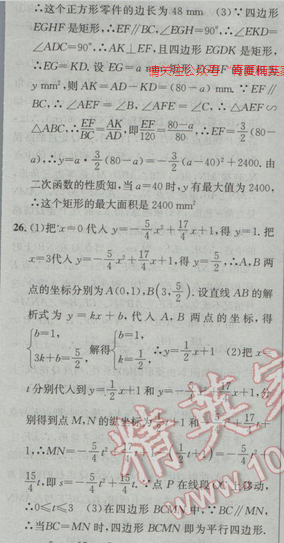 ∴这个正方形零件的边长为 48 mm (3)∵四边形
EGHF 是矩形,∴EF∥BC,∠EGH=90°,∴∠EKD=
∠ADC=90°,∴AK⊥EF,且四边形 EGDK 是矩形,
∴EG=KD. 设 EG=a mm, 矩形 EGHF 的面积为
y mm²,则 AK=AD-KD=(80-a) mm. ∵EF∥
BC,∴∠AEF=∠B,∠AFE=∠C,∴△AEF∽
△ABC,∴EF/BC=AK/AD,即EF/120=(80-a)/80,∴EF=3/2(80-
a),∴y=a·3/2(80-a)=-3/2(a-40)²+2400. 由
二次函数的性质知,当 a=40 时,y 有最大值为 2400,
∴这个矩形的最大面积是 2400 mm²
26. (1)把 x=0 代入 y=-5/4x²+17/4x+1,得 y=1. 把
x=3代入 y=-5/4x²+17/4x+1,得 y=5/2,∴A,B 两
点的坐标分别为 A(0,1),B(3,5/2). 设直线 AB 的解
析式为 y=kx+b,代入 A,B 两点的坐标,得
{b=1, 3k+b=5/2, 解得{b=1, k=1/2, ∴y=1/2x+1 (2)把 x=
t 分别代入到 y=1/2x+1 和 y=-5/4x²+17/4x+1,分
别得到点 M,N 的纵坐标为1/2t+1 和-5/4t²+17/4t+
1,∴MN=-5/4t²+17/4t+1-(1/2t+1)=-5/4t²+
15/4t,即 s=-5/4t²+15/4t. ∵点 P 在线段 OC 上移动,
∴0≤t≤3 (3)在四边形 BCMN 中,∵BC∥MN,
∴当BC=MN 时,四边形 BCMN 即为平行四边形.
精英家
www.10